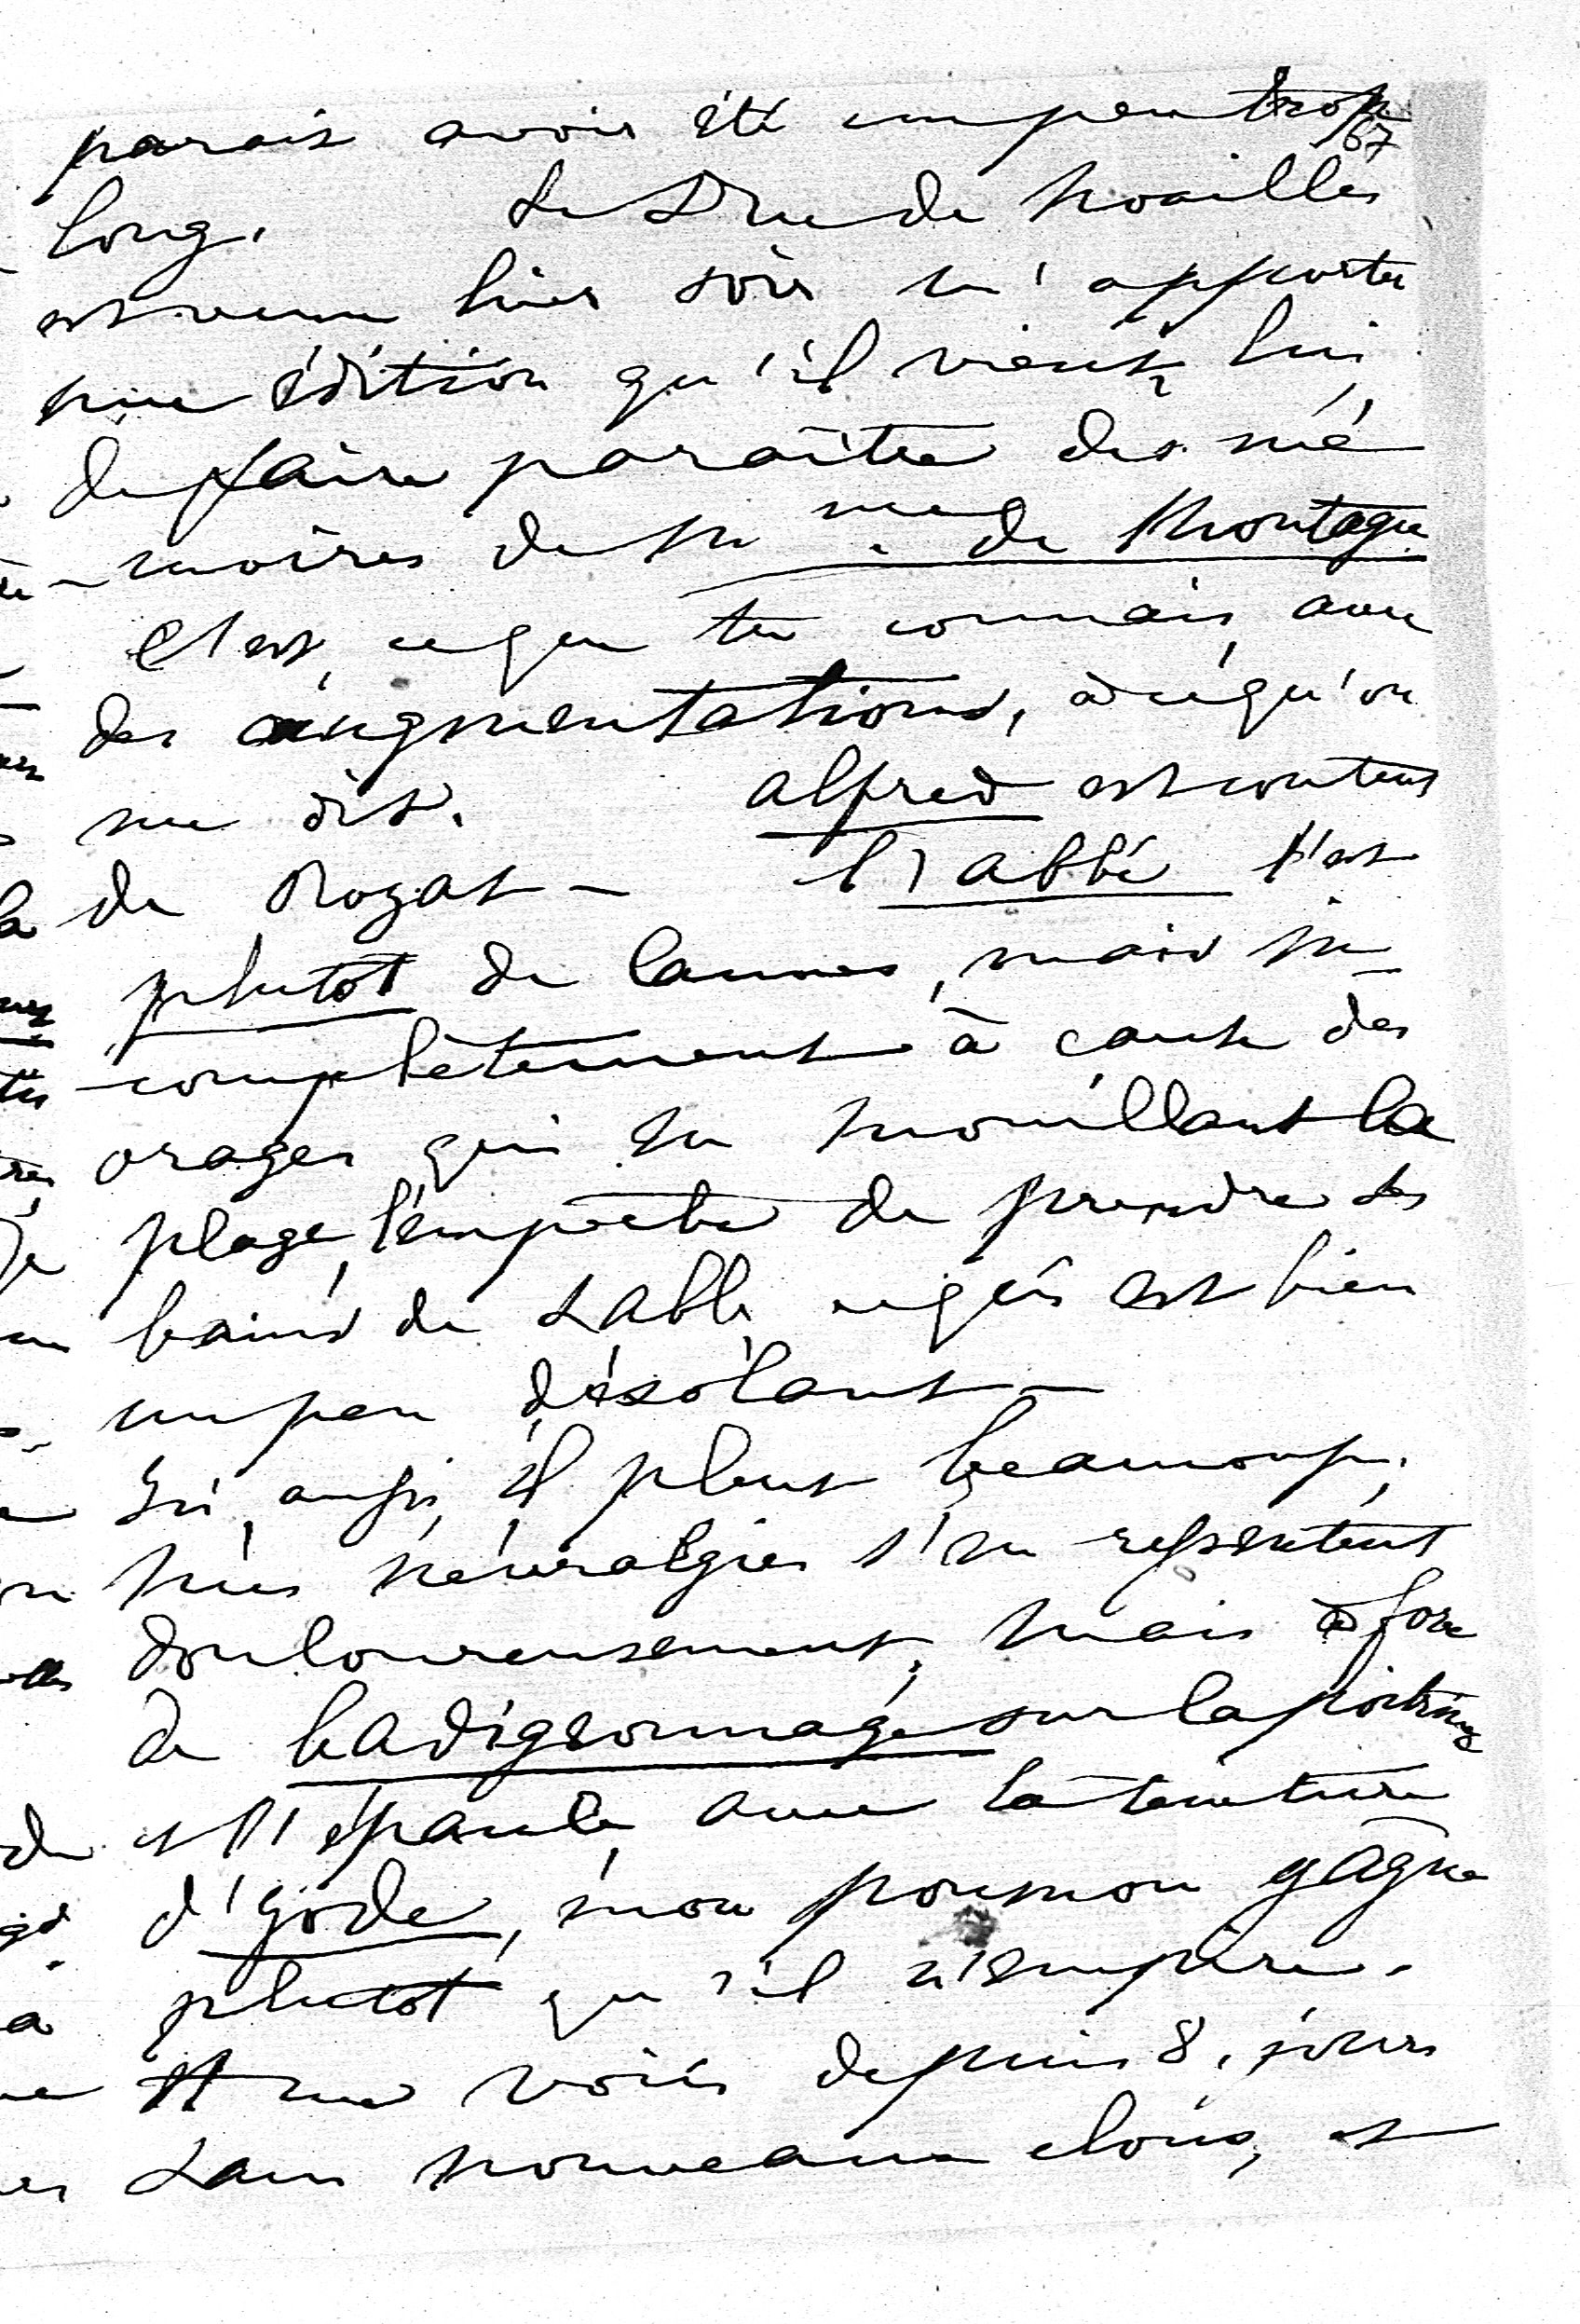 parais avois été un peu trop
67
long. Le Duc de Noailles
est venu hier soir m'apporter
une édition qu'il vient, lui,
de faire paraître des mé
-moires de M me de Montagu
C'est, ce que tu connais, avec
des augmentations, à ce qu'on
me dit. Alfred est content
de Royat - l'abbé l'est
plutot de Lannes, mais in-
-complètement à cause des
orages qui en mouillant la
plage, l'empêche de prendre des
bains de sable, ce qui est bien
un peu désolant -
Ici, aussi, il pleut beaucoup;
mes névralgies s'en ressentent
douloureusement; mais à force
de badigeonnage sur la poitrine
et l'épaule, avec la teinture
d'yode, mon poumon gagne
plutot qu'il n'empire.
Et me voici depuis 8, jours
sans nouveaux clous, et